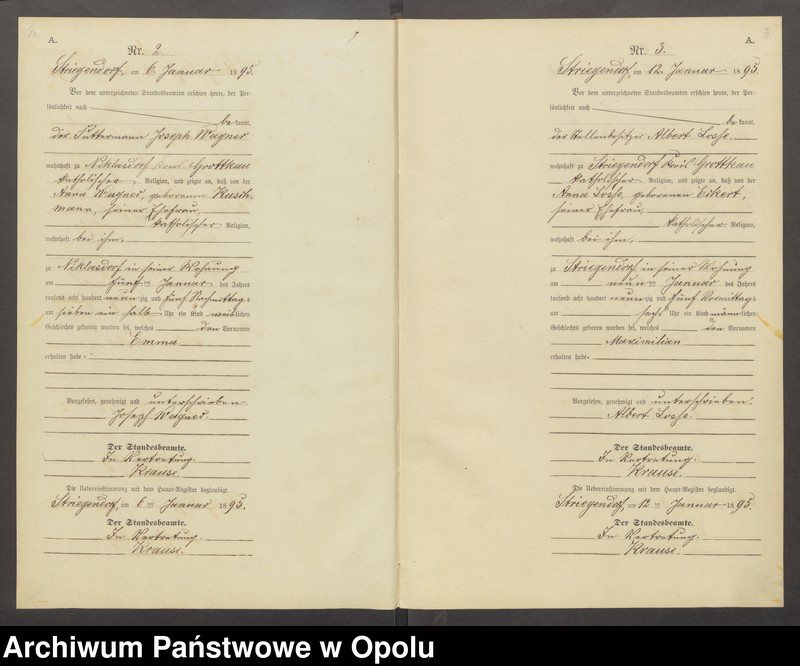 A.
Nr. 2.
Striegendorf, am 6. Januar 1895.
Vor dem unterzeichneten Standesbeamten erschien heute, der Per-
sönlichkeit nach
be kannt,
der Futtermann Joseph Wagner
wohnhaft zu Niklasdorf Kreis Grottkau
katholischer Religion, und zeigte an, daß von der
Anna Wagner, geborenen
mann, seiner Ehefrau,
katholischer Religion,
wohnhaft bei ihm,
zu Niklasdorf in seiner Wohnung
am fünf ten Januar des Jahres
tausend acht hundert neun zig und fünf Nachmittags
um sieben ein halb Uhr ein Kind weiblichen
Geschlechts geboren worden sei, welches den Vornamen
Emma
erhalten habe
Vorgelesen, genehmigt und unterschrieben
Joseph Wagner.
Der Standesbeamte.
In Vertretung.
Krause.
Die Uebereinstimmung mit dem Haupt-Register beglaubigt.
Striegendorf, am 6 ten Januar 1895.
Der Standesbeamte.
In Vertretung.
Krause.
A.
3
Nr. 3.
Striegendorf, am 12. Januar 1895.
Vor dem unterzeichneten Standesbeamten erschien heute, der Per-
sönlichkeit nach
be kannt,
der Stellenbesitzer Albert Losse,
wohnhaft zu Striegendorf Kreis Grottkau
katholischer Religion, und zeigte an, daß von der
Anna Losse, geborenen Eckert,
seiner Ehefrau,
katholischer Religion,
wohnhaft bei ihm,
zu Striegendorf in seiner Wohnung
am neun ten Januar des Jahres
tausend acht hundert neun zig und fünf Vormittags
um sechs Uhr ein Kind männlichen
Geschlechts geboren worden sei, welches den Vornamen
Maximilian
erhalten habe
Vorgelesen, genehmigt und unterschrieben.
Albert Losse.
Der Standesbeamte.
In Vertretung.
Krause.
Die Uebereinstimmung mit dem Haupt-Register beglaubigt.
Striegendorf, am 12 ten Januar 1895.
Der Standesbeamte.
In Vertretung.
Krause.
Archiwum Państwowe w Opolu